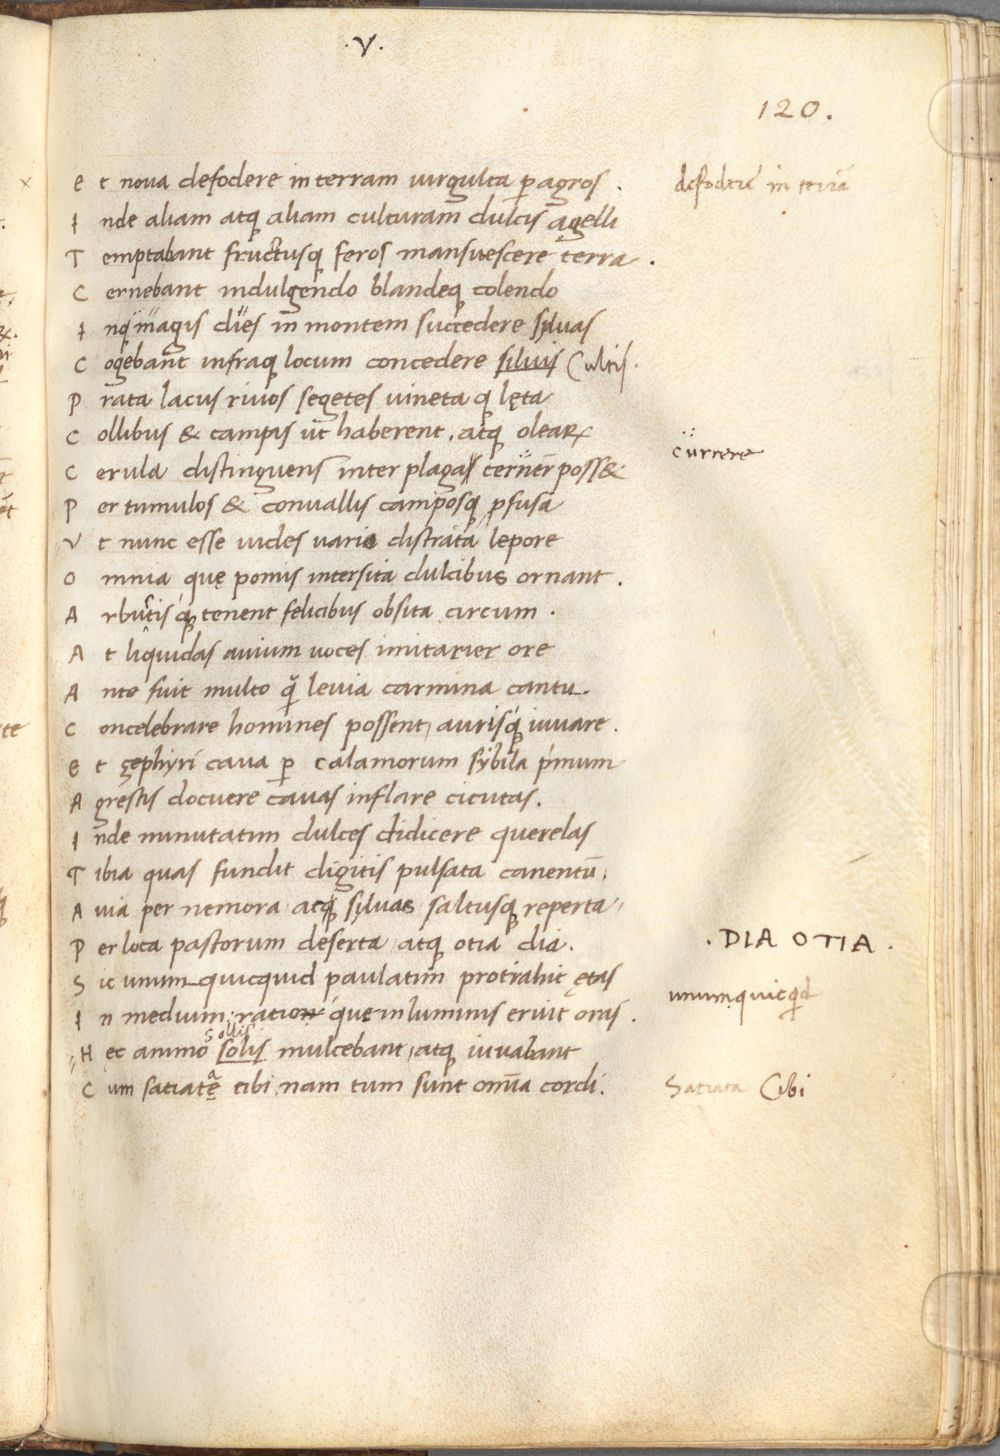 .V.
120.
E t noua defodere in terram uirgulta p agros . defodere in terrã
I nde aliam atq aliam culturam dulcis agelli
T emptabant fructusq feros mansuescere terra .
C ernebant indulgendo blandeq colendo
I nq magis dies in montem succedere syluas
C ogebant infraq locum concedere siluis Cultis.
P rata lacus riuos segetes uineta q lęta
C ollibus & campis ut haberent, atq olearꝝ
C erula distinguens inter plagas currere poss& currere
P er tumulos & conuallis camposq pfusa
V t nunc esse uides uario distrata lepore
O mnia quę pomis intersita dulcibus ornant .
A rbustisq tenent felicibus obsita circum .
A t liquidas auium uoces imitarier ore
A nte fuit multo q̃ leuia carmina cantu.
C oncelebrare homines possent, aurisq iuuare .
E t zephyri caua p calamorum sybila pimum
A grestis docuere cauas inflare cicutas.
I nde minutatim dulces didicere querelas
T ibia quas fundit digitis pulsata canentũ,
A uia per nemora atq syluas saltusq reperta,
P er loca pastorum deserta, atq otia dia. .DIA OTIA .
S ic unum quicquid paulatim protrahit ętas
I n medium, ratio que in luminis eruit oras . unumquicqd
H ęc animo solis sollis mulcebant, atq iuuabant
C um satiatę a cibi nam tum sunt omĩa cordi. Satiata Cibi